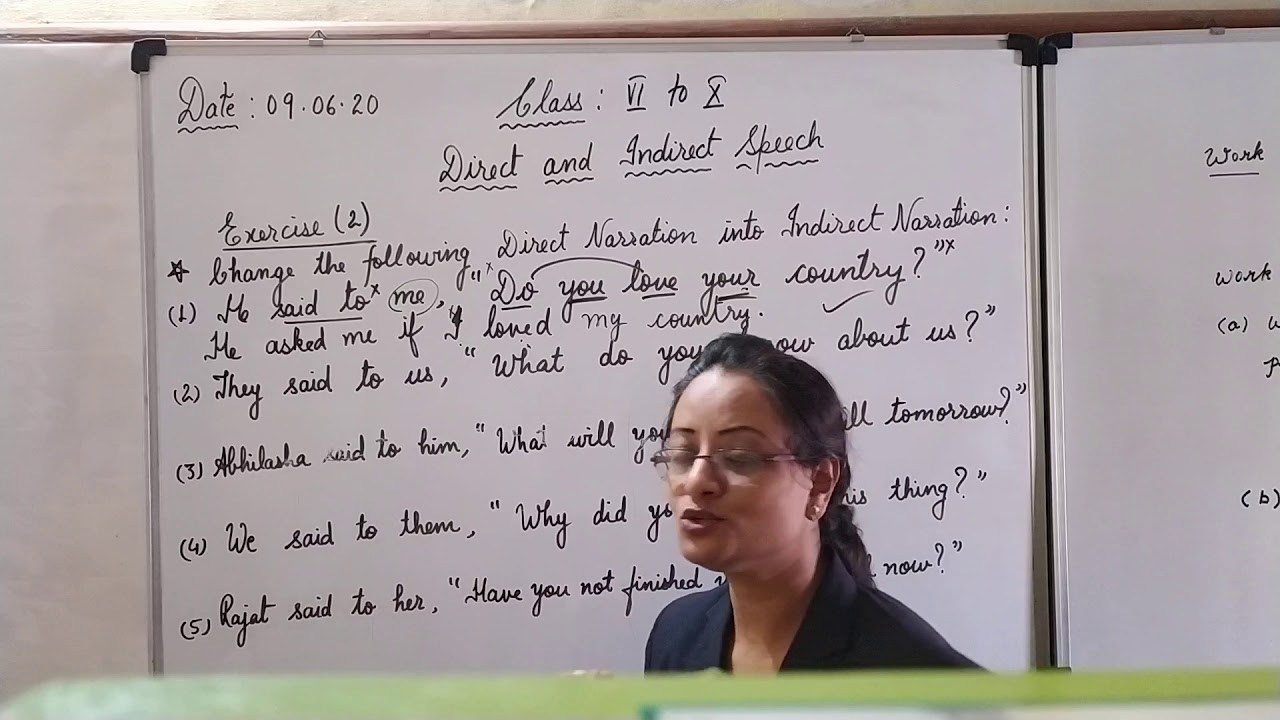 Date : 09.06.20
Class : VI to X
Direct and Indirect Speech
Exercise (2)
Change the following Direct Narration into Indirect Narration :
(1) He said to me, "Do you love your country?"
He asked me if I loved my country.
(2) They said to us, "What do you about us?"
(3) Abhilasha said to him, "What will tomorrow?"
(4) We said to them, "Why did thing?"
(5) Rajat said to her, "Have you not finished now?"
Work
Work
(a)
(b)